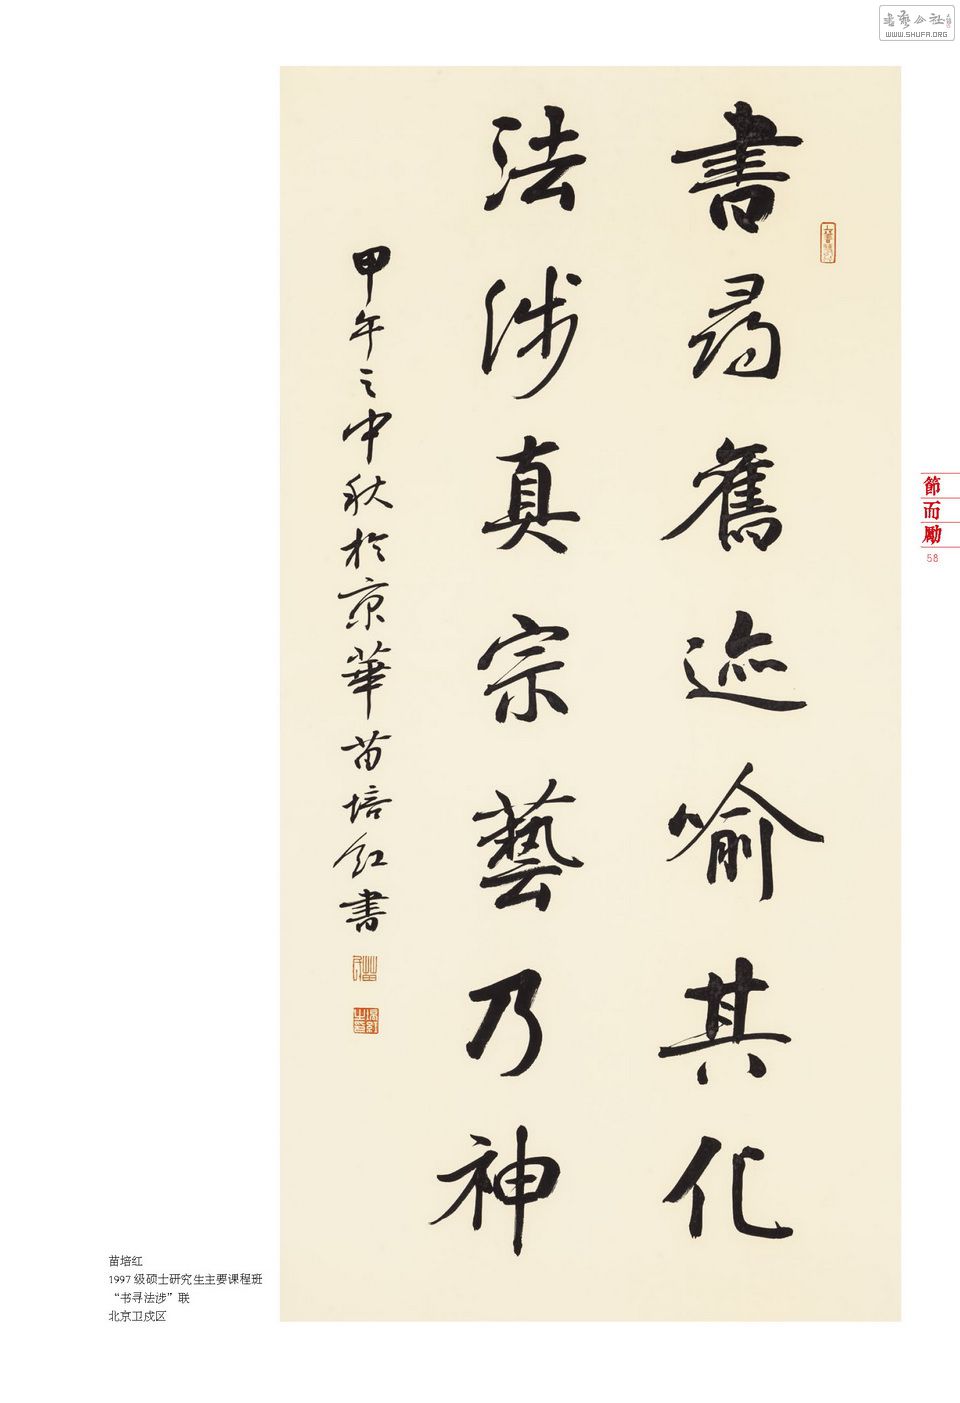 書尋舊迹喻其化
法涉真宗藝乃神
甲午之中秋於京華苗培紅書
節而勵
58
苗培红
1997 级硕士研究生主要课程班
“书寻法涉”联
北京卫戍区
書藝公社
WWW.SHUFA.ORG